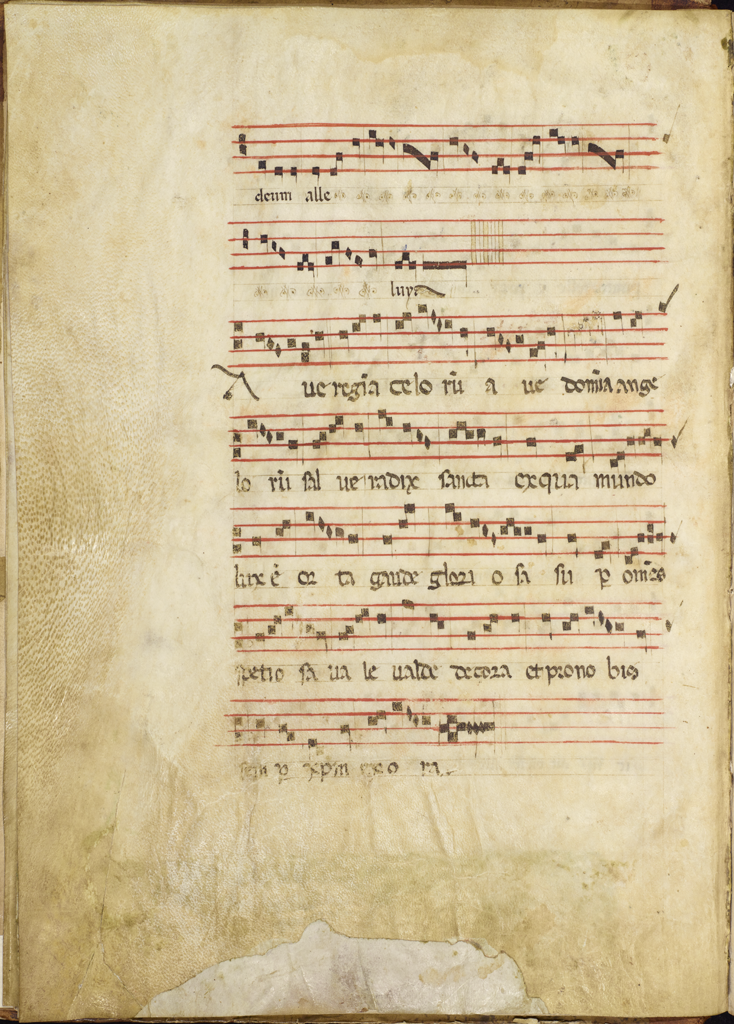 deum alle
luya
A ue regīa celo rū a ue domīa ange
lo rū sal ue radix sancta ex qua mundo
lux ē or ta gaude glori o sa su ꝑ om̄es
spetio sa ua le ualde decora et pro no bis
sem ꝑ xp̄m exo ra.